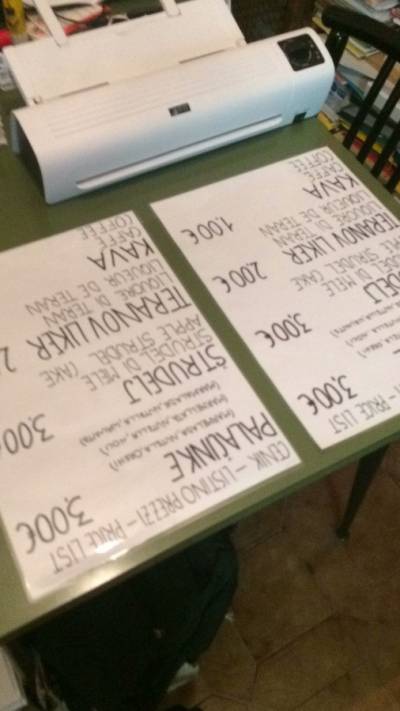 CENIK – LISTINO PREZZI – PRICE LIST
PALAČINKE 3,00€
(MARMELADA, NUTELLA, OREHI)
(MARMELLATE, NUTELLA, NOCI)
(MARMALADE, NUTELLA, WALNUTS)
ŠTRUDELJ 3,00€
STRUDEL DI MELE
APPLE STRUDEL CAKE
TERANOV LIKER 2
LIQUORE DI TERAN
LIQUEUR DE TERAN
KAVA
CAFFE
COFFEE
– PRICE LIST
3,00€
DELJ 3,00€
DI MELE
STRUDEL CAKE
TERANOV LIKER 2,00€
LIQUORE DI TERAN
LIQUEUR DE TERAN
KAVA 1,00€
COFFEE